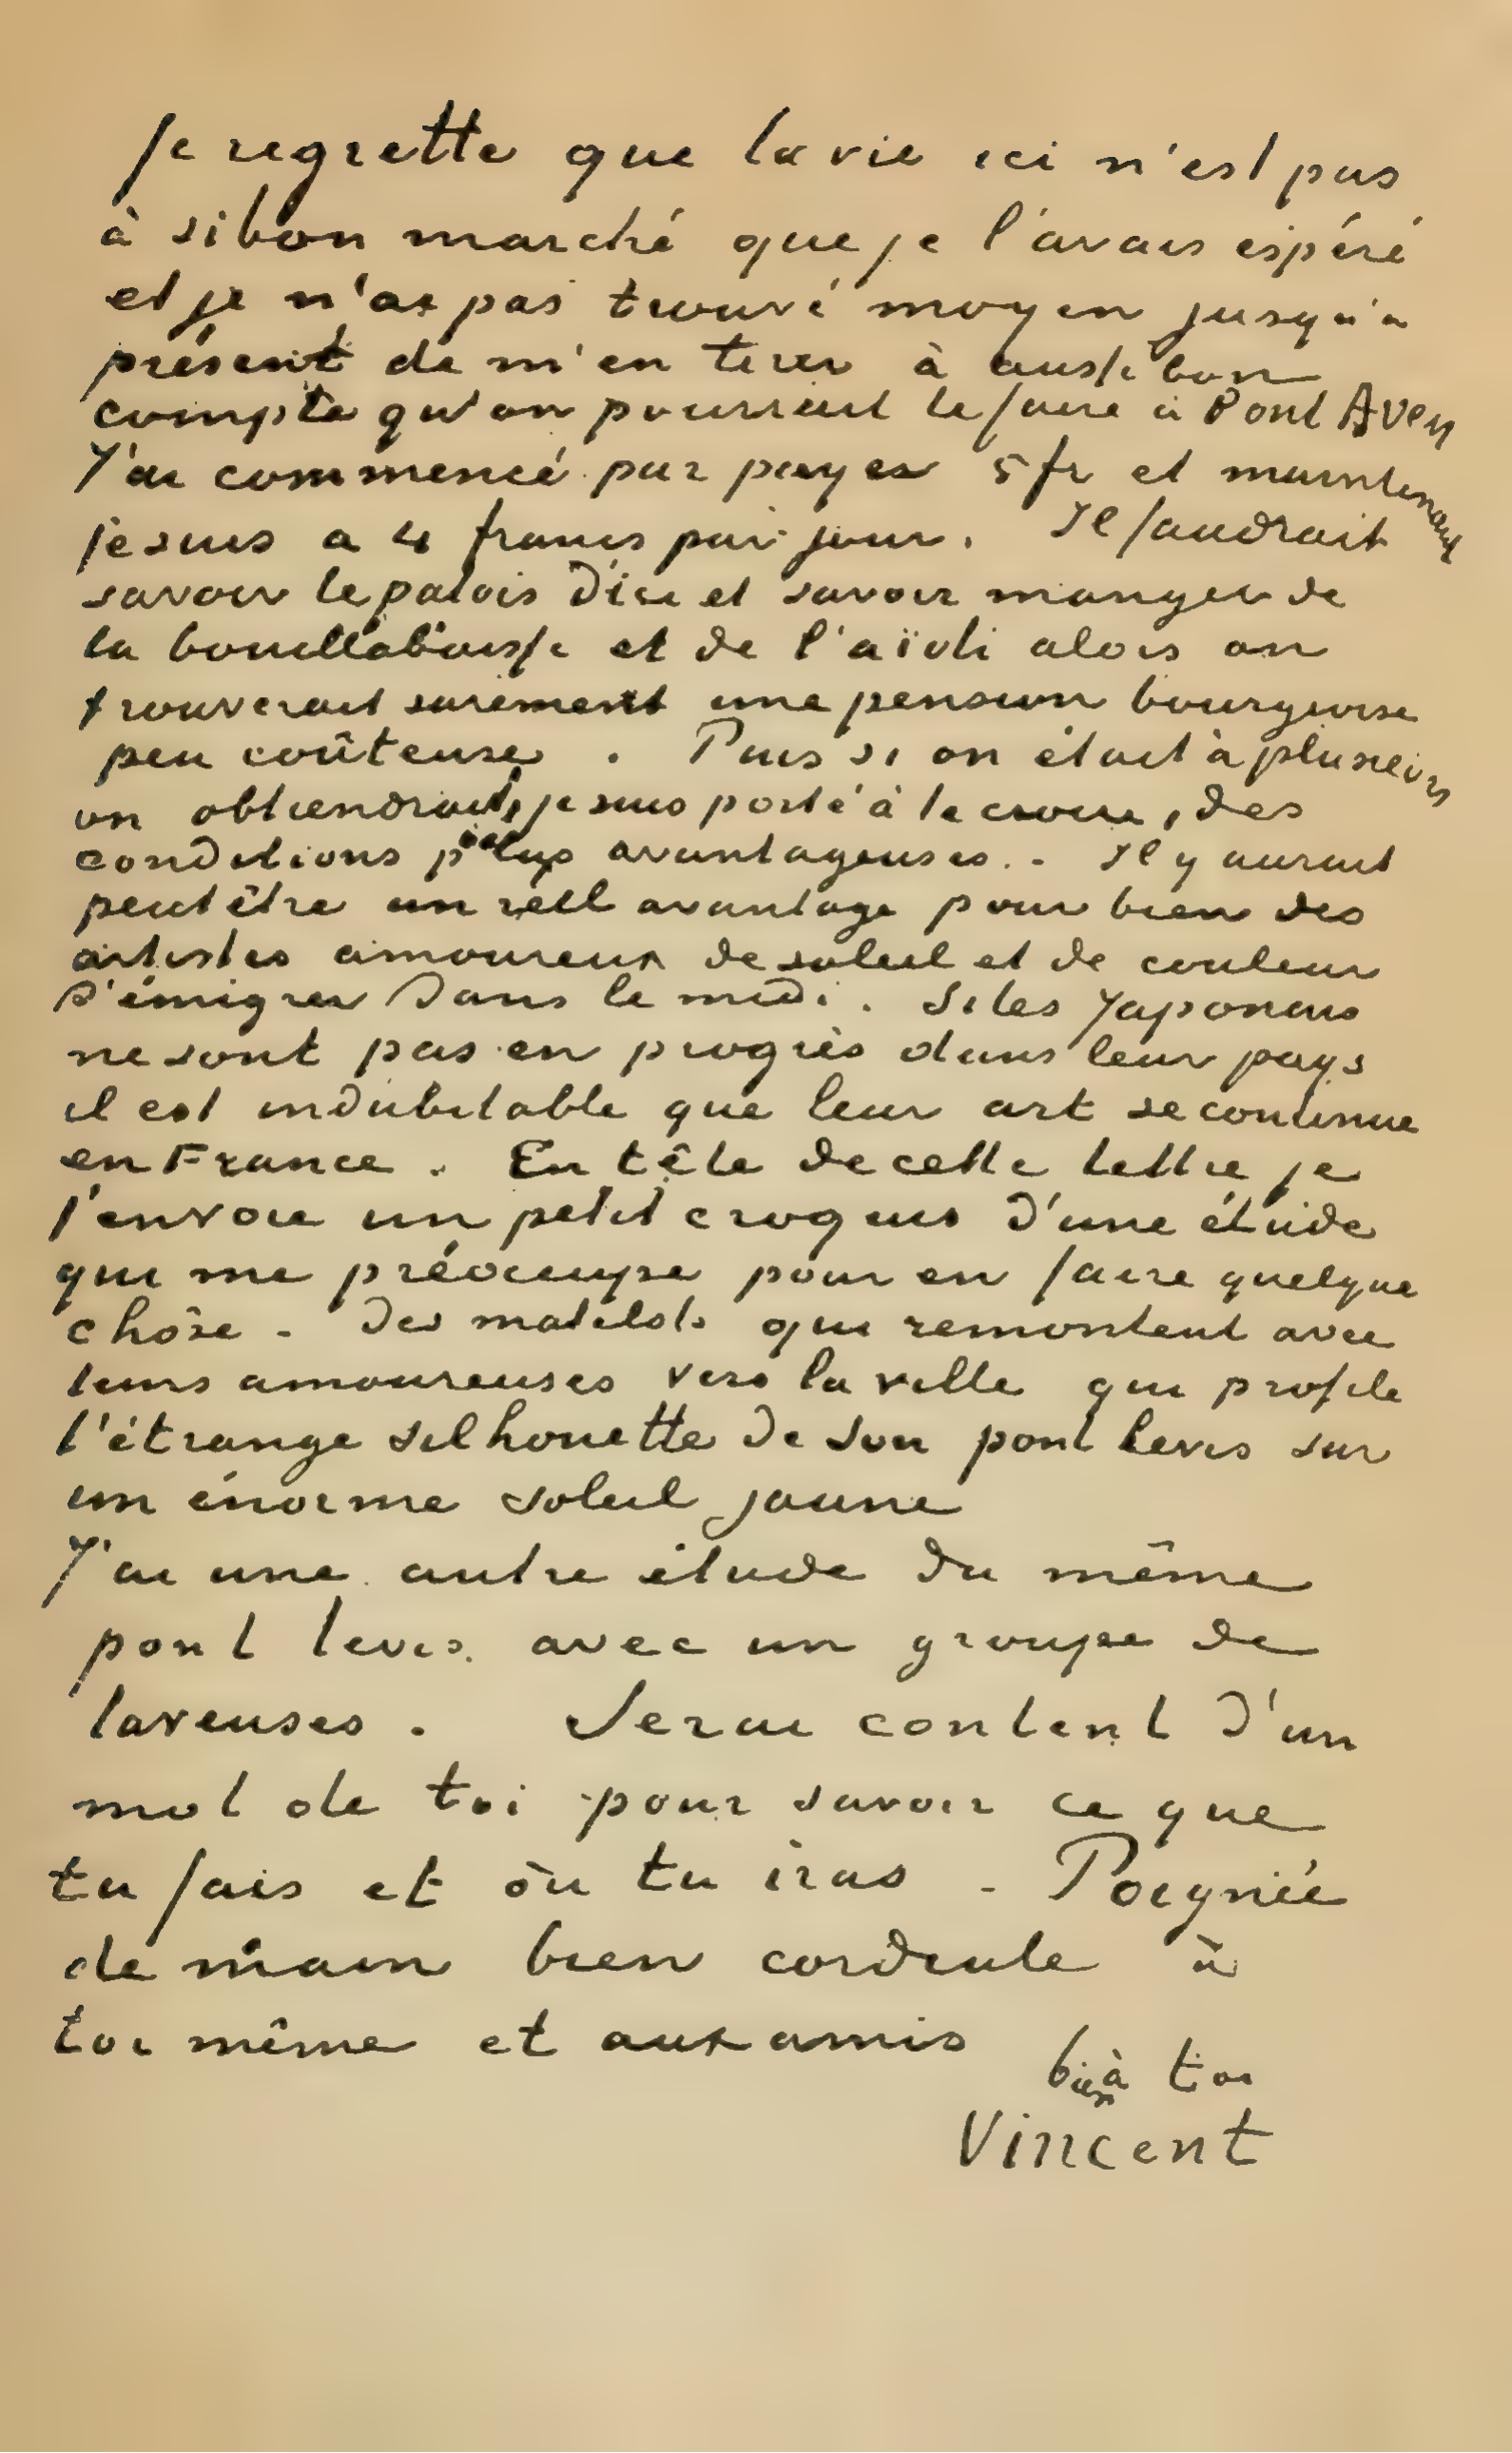 Je regrette que la vie ici n'est pas
à si bon marché que je l'avais espéré
et je n'ai pas trouvé moyen jusqu'à
présent de m'en tirer à aussi bon
compte qu'on pourrait le faire à Pont Aven
J'ai commencé par payer 5 fr et maintenant
je suis a 4 francs par jour. Il faudrait
savoir le patois d'ici et savoir manger de
la bouillabaisse et de l'aïoli alors on
trouverait surement une pension bourgeoise
peu coûteuse. Puis si on était à plusieurs
on obtiendrait, je suis porté à le croire, des
conditions plus avantageuses. - Il y aurait
peut être un réel avantage pour bien des
artistes amoureux de soleil et de couleur
d'émigrer dans le midi. Si les Japonais
ne sont pas en progrès dans leur pays
il est indubitable que leur art se continue
en France. En tête de cette lettre je
t'envoie un petit croquis d'une étude
qui me préoccupe pour en faire quelque
chôse - Des matelots qui remontent avec
leurs amoureuses vers la ville qui profile
l'étrange silhouette de son pont levis sur
un énorme soleil jaune
J'ai une autre étude du même
pont levis avec un groupe de
laveuses. Serai content d'un
mot de toi pour savoir ce que
tu fais et où tu iras - Poignée
de main bien cordiale à
toi même et aux amis
bien à toi
Vincent